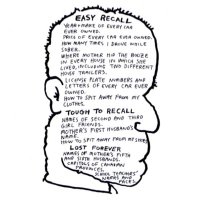 EASY RECALL
YEAR & MAKE OF EVERY CAR
EVER OWNED.
PRICE OF EVERY CAR EVER OWNED.
HOW MANY TIMES I DROVE WHILE
SOBER.
WHERE MOTHER HID THE BOOZE
IN EVERY HOUSE IN WHICH SHE
LIVED, INCLUDING TWO DIFFERENT
HOUSE TRAILERS.
LICENSE PLATE NUMBERS AND
LETTERS OF EVERY CAR EVER
OWNED.
HOW TO SPIT AWAY FROM MY
CLOTHES.
TOUGH TO RECALL
NAMES OF SECOND AND THIRD
GIRL FRIENDS.
MOTHER'S FIRST HUSBAND'S
NAME.
HOW TO SPIT AWAY FROM MY SHOES
LOST FOREVER
NAMES OF MOTHER'S FIFTH
AND SIXTH HUSBANDS.
CAPITALS OF CANADIAN
PROVINCES.
SCHOOL TEACHERS'
NAMES AND
FACES